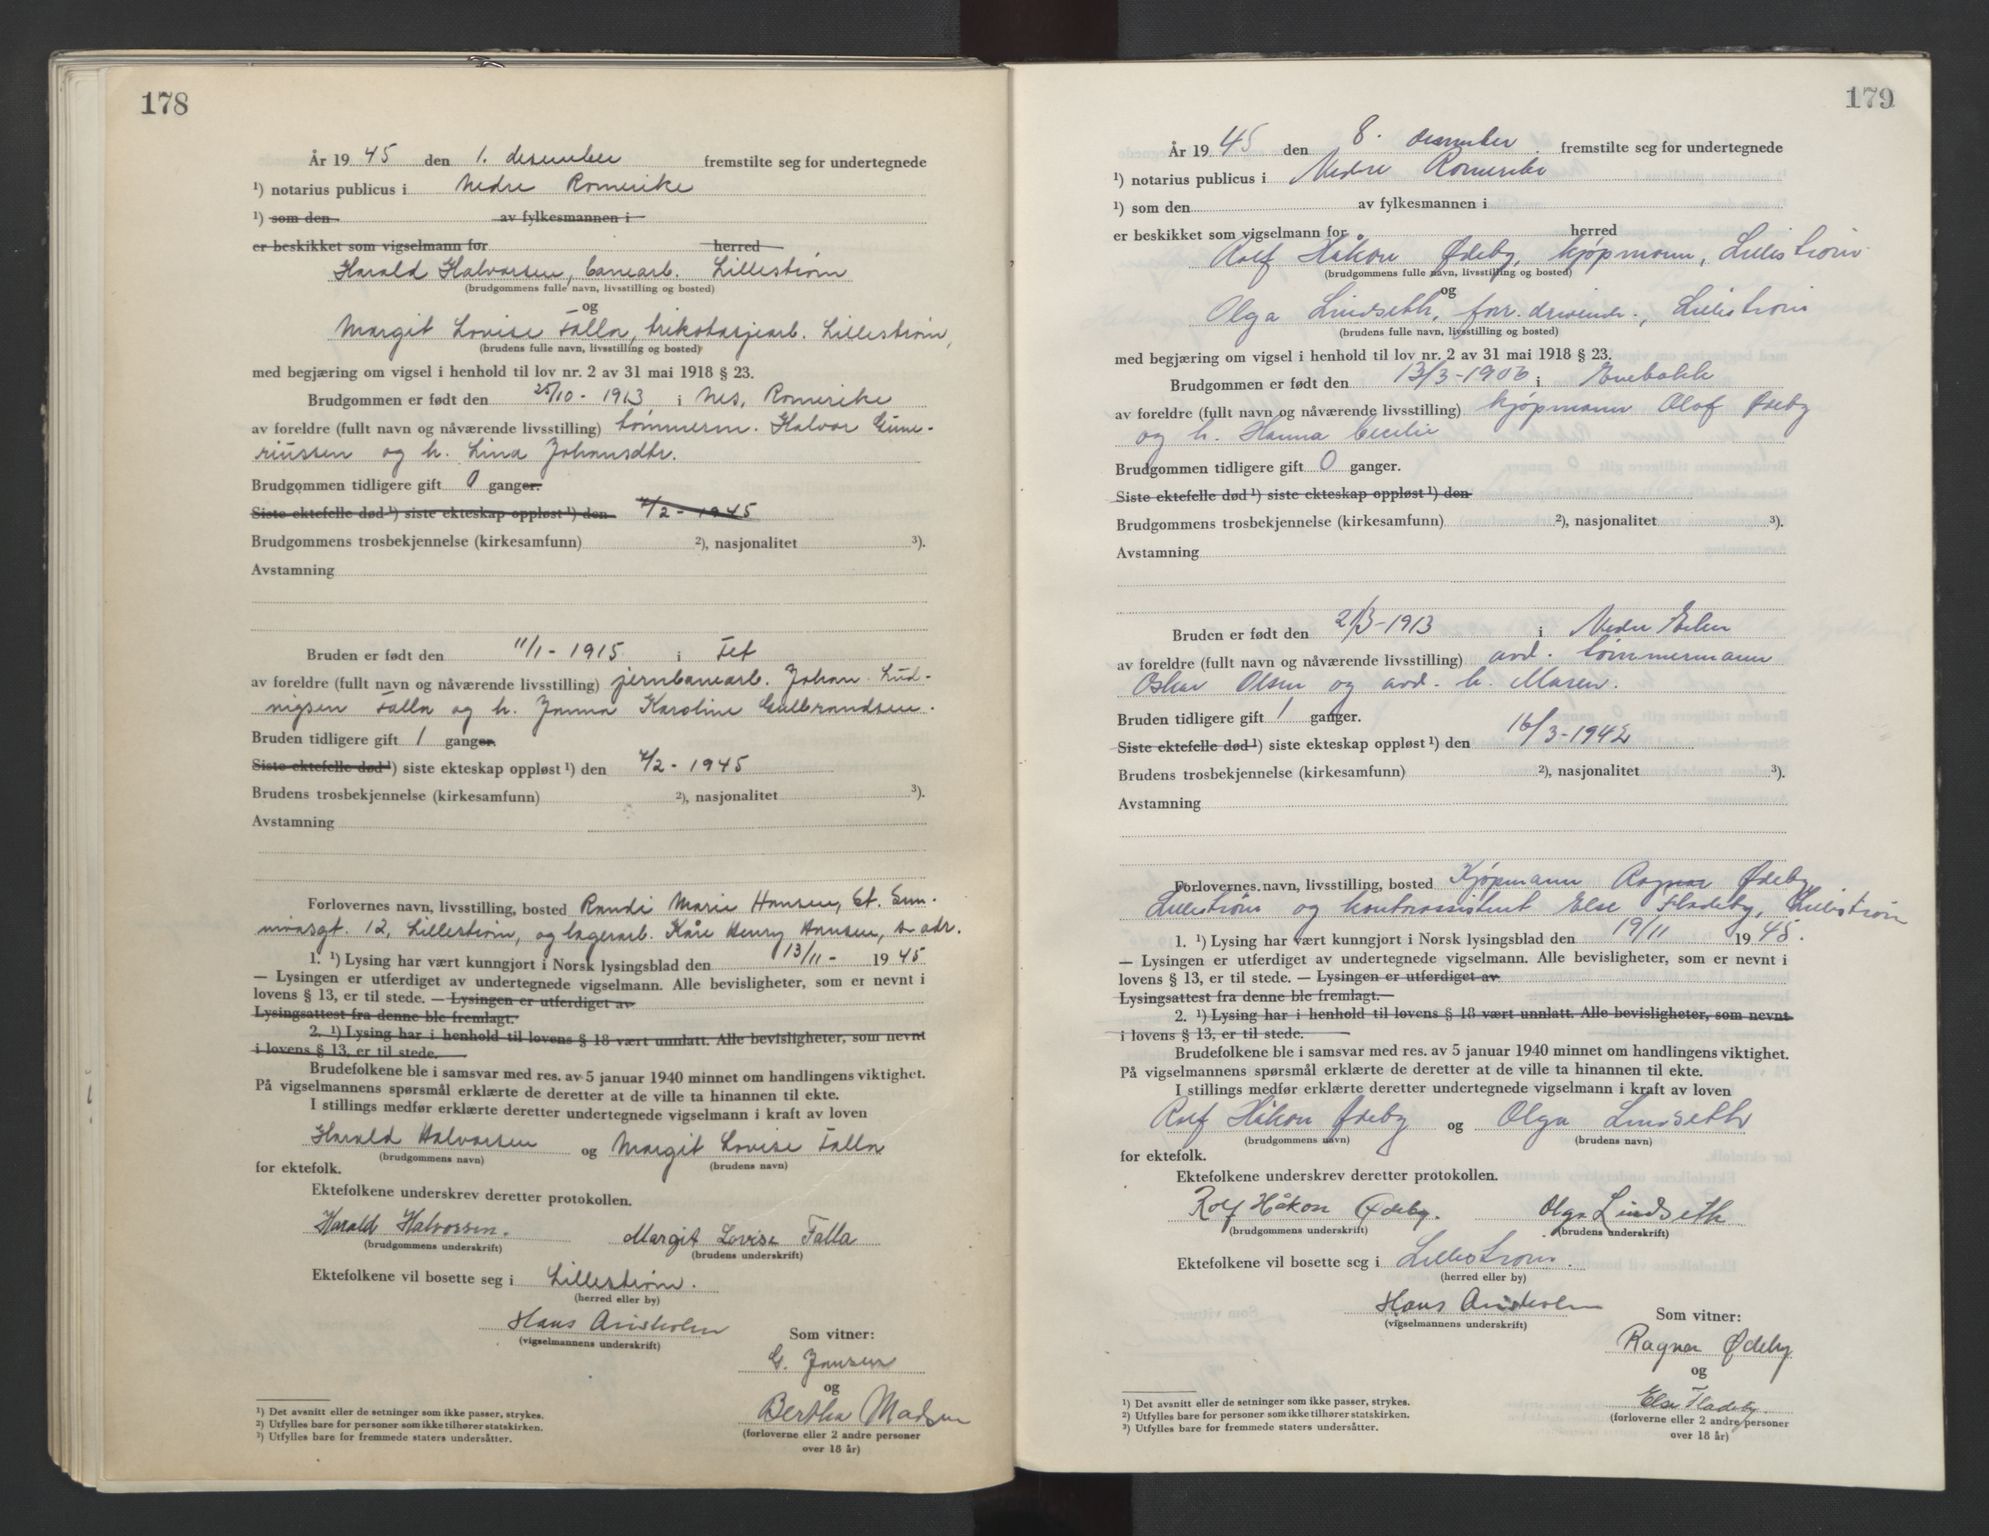 178
År 19 45 den 1. desember fremstilte seg for undertegnede
¹) notarius publicus i Nedre Romerike
¹) som den av fylkesmannen i
er beskikket som vigselmann for herred
Harald Halvorsen, banearb. Lillestrøm
(brudgommens fulle navn, livsstilling og bosted)
og
Margit Lovise Falla, trikotasjearb. Lillestrøm,
(brudens fulle navn, livsstilling og bosted)
med begjæring om vigsel i henhold til lov nr. 2 av 31 mai 1918 § 23.
Brudgommen er født den 25/10 - 1913 i Nes, Romerike
av foreldre (fullt navn og nåværende livsstilling) tømmerm. Halvor Gune-
riussen og h. Lina Johansdtr.
Brudgommen tidligere gift 0 ganger.
Siste ektefelle død ¹) siste ekteskap oppløst ¹) den 7/2 - 1945
Brudgommens trosbekjennelse (kirkesamfunn) ²), nasjonalitet ³).
Avstamning
Bruden er født den 11/1 - 1915 i Fet
av foreldre (fullt navn og nåværende livsstilling) jernbanearb. Johan Lud-
vigsen Falla og h. Janna Karoline Gulbrandsen.
Bruden tidligere gift 1 ganger.
Siste ektefelle død ¹) siste ekteskap oppløst ¹) den 7/2 - 1945
Brudens trosbekjennelse (kirkesamfunn) ²), nasjonalitet ³).
Avstamning
Forlovernes navn, livsstilling, bosted Randi Marie Hansen, St. Sun-
nivasgt. 12, Lillestrøm, og lagerarb. Kåre Henry Hansen, s. adr.
1. ¹) Lysing har vært kunngjort i Norsk lysingsblad den 13/11 - 19 45
— Lysingen er utferdiget av undertegnede vigselmann. Alle bevisligheter, som er nevnt i
lovens § 13, er til stede. — Lysingen er utferdiget av
Lysingsattest fra denne ble fremlagt.
2. ¹) Lysing har i henhold til lovens § 18 vært unnlatt. Alle bevisligheter, som nevnt
i lovens § 13, er til stede.
Brudefolkene ble i samsvar med res. av 5 januar 1940 minnet om handlingens viktighet.
På vigselmannens spørsmål erklærte de deretter at de ville ta hinannen til ekte.
I stillings medfør erklærte deretter undertegnede vigselmann i kraft av loven
Harald Halvorsen og Margit Lovise Falla
(brudgommens navn) (brudens navn)
for ektefolk.
Ektefolkene underskrev deretter protokollen.
Harald Halvorsen. Margit Lovise Falla
(brudgommens underskrift) (brudens underskrift)
Ektefolkene vil bosette seg i Lillestrøm.
(herred eller by)
Hans Arisholm
(vigselmannens underskrift)
Som vitner:
G. Jansen
og
Bertha Madsen
(forloverne eller 2 andre personer
over 18 år)
¹) Det avsnitt eller de setninger som ikke passer, strykes.
²) Utfylles bare for personer som ikke tilhører statskirken.
³) Utfylles bare for fremmede staters undersåtter.
179
År 19 45 den 8. desember. fremstilte seg for undertegnede
¹) notarius publicus i Nedre Romerike
¹) som den av fylkesmannen i
er beskikket som vigselmann for herred
Rolf Håkon Ødeby, kjøpmann, Lillestrøm
(brudgommens fulle navn, livsstilling og bosted)
og
Olga Lindseth, forr. drivende, Lillestrøm
(brudens fulle navn, livsstilling og bosted)
med begjæring om vigsel i henhold til lov nr. 2 av 31 mai 1918 § 23.
Brudgommen er født den 13/3 - 1906 i Enebakk
av foreldre (fullt navn og nåværende livsstilling) kjøpmann Olof Ødeby
og h. Hanna Cecilie
Brudgommen tidligere gift 0 ganger.
Siste ektefelle død ¹) siste ekteskap oppløst ¹) den
Brudgommens trosbekjennelse (kirkesamfunn) ²), nasjonalitet ³).
Avstamning
Bruden er født den 21/3 - 1913 i Nedre Eiker
av foreldre (fullt navn og nåværende livsstilling) avd. tømmermann
Oskar Olsen og avd. h. Maren.
Bruden tidligere gift 1 ganger.
Siste ektefelle død ¹) siste ekteskap oppløst ¹) den 16/3 - 1942
Brudens trosbekjennelse (kirkesamfunn) ²), nasjonalitet ³).
Avstamning
Forlovernes navn, livsstilling, bosted Kjøpmann Ragnar Ødeby,
Lillestrøm og kontorassistent Else Fladeby, Lillestrøm
1. ¹) Lysing har vært kunngjort i Norsk lysingsblad den 19/11 19 45.
— Lysingen er utferdiget av undertegnede vigselmann. Alle bevisligheter, som er nevnt i
lovens § 13, er til stede. — Lysingen er utferdiget av
Lysingsattest fra denne ble fremlagt.
2. ¹) Lysing har i henhold til lovens § 18 vært unnlatt. Alle bevisligheter, som nevnt
i lovens § 13, er til stede.
Brudefolkene ble i samsvar med res. av 5 januar 1940 minnet om handlingens viktighet.
På vigselmannens spørsmål erklærte de deretter at de ville ta hinannen til ekte.
I stillings medfør erklærte deretter undertegnede vigselmann i kraft av loven
Rolf Håkon Ødeby og Olga Lindseth
(brudgommens navn) (brudens navn)
for ektefolk.
Ektefolkene underskrev deretter protokollen.
Rolf Håkon Ødeby. Olga Lindseth
(brudgommens underskrift) (brudens underskrift)
Ektefolkene vil bosette seg i Lillestrøm.
(herred eller by)
Hans Arisholm
(vigselmannens underskrift)
Som vitner:
Ragnar Ødeby
og
Else Fladeby.
(forloverne eller 2 andre personer
over 18 år)
¹) Det avsnitt eller de setninger som ikke passer, strykes.
²) Utfylles bare for personer som ikke tilhører statskirken.
³) Utfylles bare for fremmede staters undersåtter.